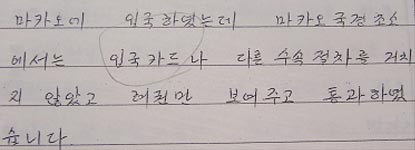 마카오에 입국하였는데 마카오 국경초소
에서는 입국카드나 다른 수속 절차를 거치
지 않았고 려권만 보여주고 통과하였
습니다